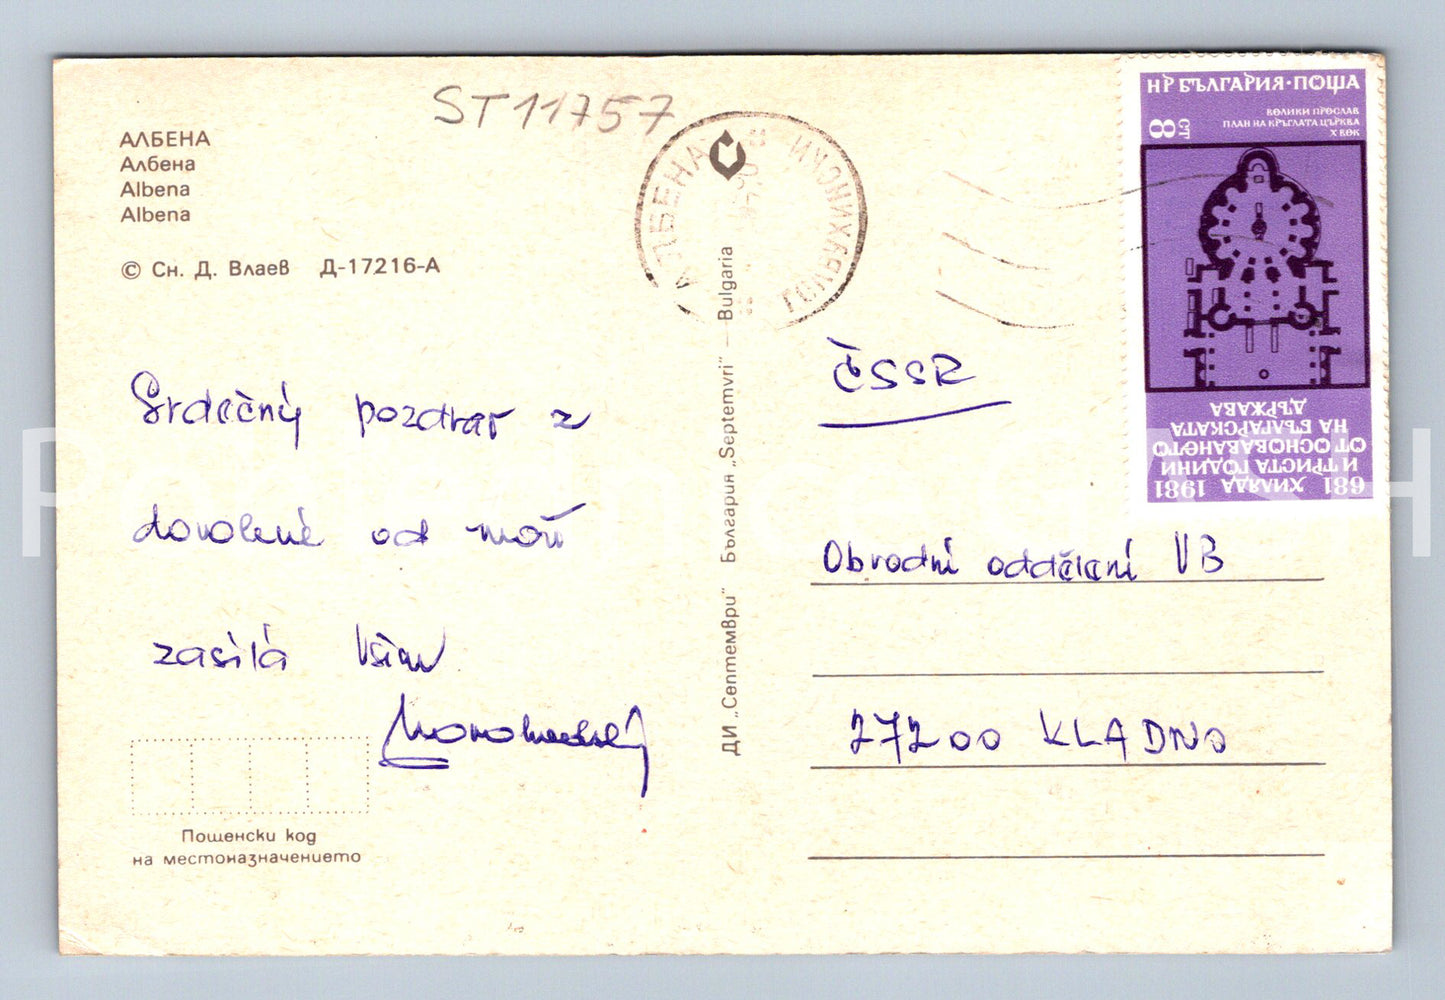 ST11757
АЛБЕНА
Албена
Albena
Albena
© Сн. Д. Влаев Д-17216-А
Srdečný pozdrav z
dovolené od moře
zasílá Všem
Пощенски код
на местоназначението
АЛБЕНА
ДИ „Септември“ България „Septemvri“ — Bulgaria
НР БЪЛГАРИЯ·ПОЩА
ВЕЛИКИ ПРЕСЛАВ
ПЛАН НА КРЪГЛАТА ЦЪРКВА
X ВЕК
8 СТ
681 ХИЛЯДА 1981
И ТРИСТА ГОДИНИ
ОТ ОСНОВАВАНЕТО
НА БЪЛГАРСКАТА
ДЪРЖАВА
ČSSR
Obvodní oddělení VB
27200 KLADNO